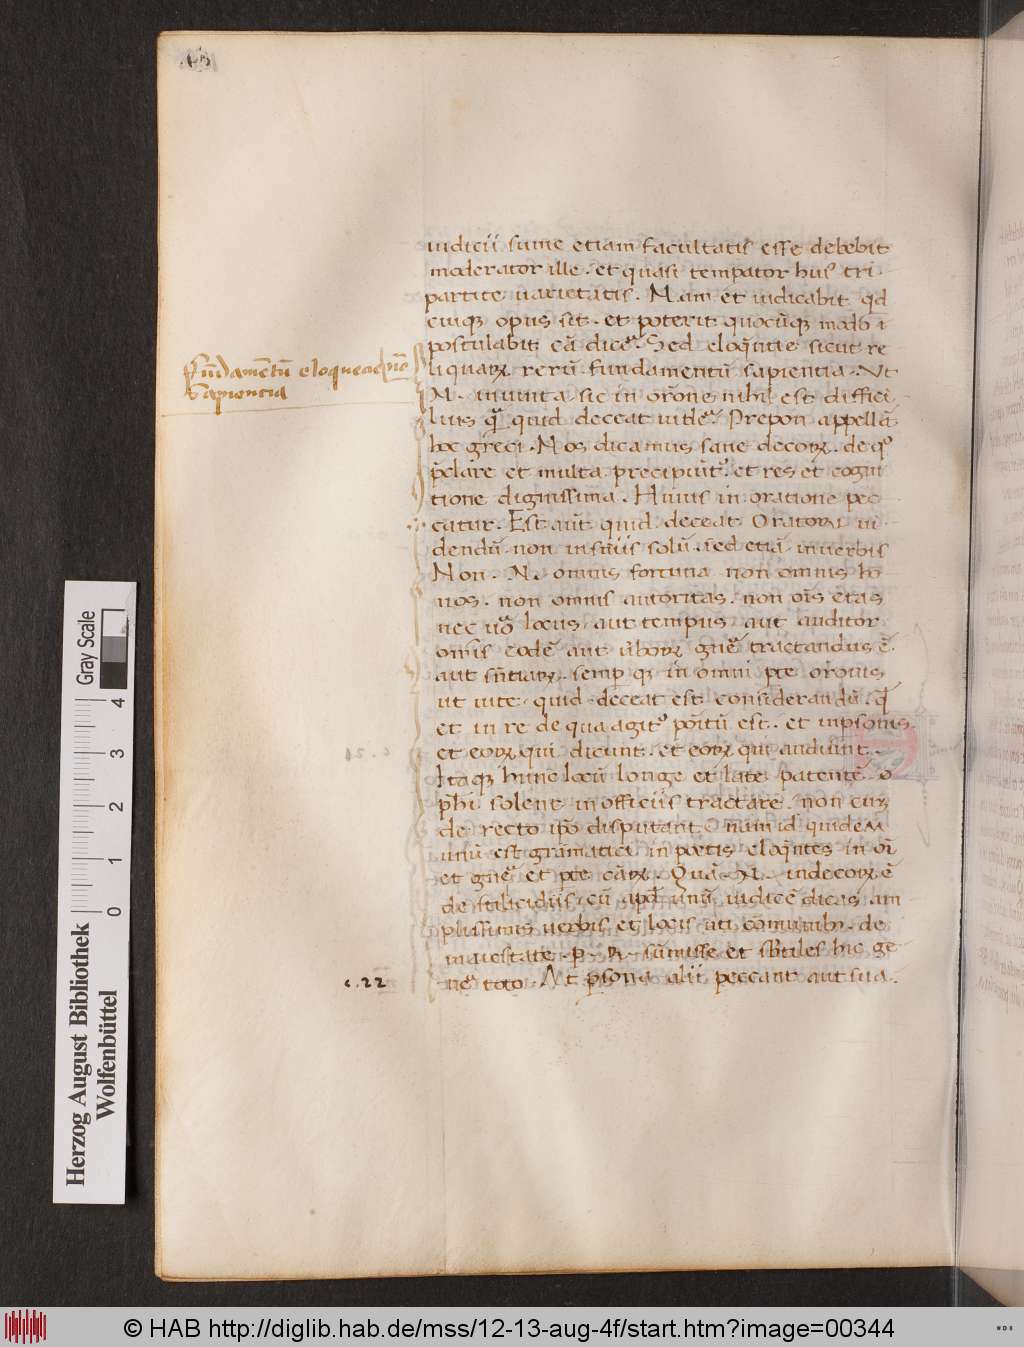 iudicii sume etiam facultatis esse debebit
moderator ille. et quasi tempator hus tri
partite uarietatis. Nam et iudicabit qd
cuiq; opus sit. et poterit quocūq; modo
postulabit cā dicē. Sed eloqñtie sicut re
liquaꝝ rerū. fundamentū sapientia. Ut
N. inuita sic in orōne nihil est diffici
lius qᷓ quid deceat uidē. Prepon appellāt
hoc greci. Nos dicamus sane decoꝝ. de qͦ
p̄clare et multa precipiūt. et res et cogni
tione dignissima. Huius in oratione pec
catur. Est aūt quid deceat Oratori ui
dendū. non in sñiis solū. sed etiā in uerbis
Non. N. omnis fortuna non omnis ho
nos. non omnis autoritas. non ois etas
nec uō locus aut tempus aut auditor
omīs eodē aut ūboꝝ gnē tractandus ē.
aut sñtiaꝝ. semp q; in omni pte orōnis
ut uite. quid deceat est considerandū. qd
et in re de qua agitͬ poītū est. et in psonis
et eoꝝ qui dicunt. et eoꝝ qui audiunt.
Itaq; hunc locū longe et late patentē
phi solent in officiis tractare. non cum
de recto ipō disputant nam id quidem
unū est grāmatici in poetis eloqñtes in oī
et gnē et pte cāꝝ. Quā N. indecoꝝ ē
de stilicidiis cū apd unū iudicē dicas am
plissimis uerbis et locis uti comunibꝫ. de
maiestate. P. R. sūmisse et sbtiles hic ge
nē toto. At psona alii peccant aut sua.
Fūdamētū eloquecie
Sapiencia
c. 22
Gray Scale
0 1 2 3 4
Herzog August Bibliothek
Wolfenbüttel
© HAB http://diglib.hab.de/mss/12-13-aug-4f/start.htm?image=00344